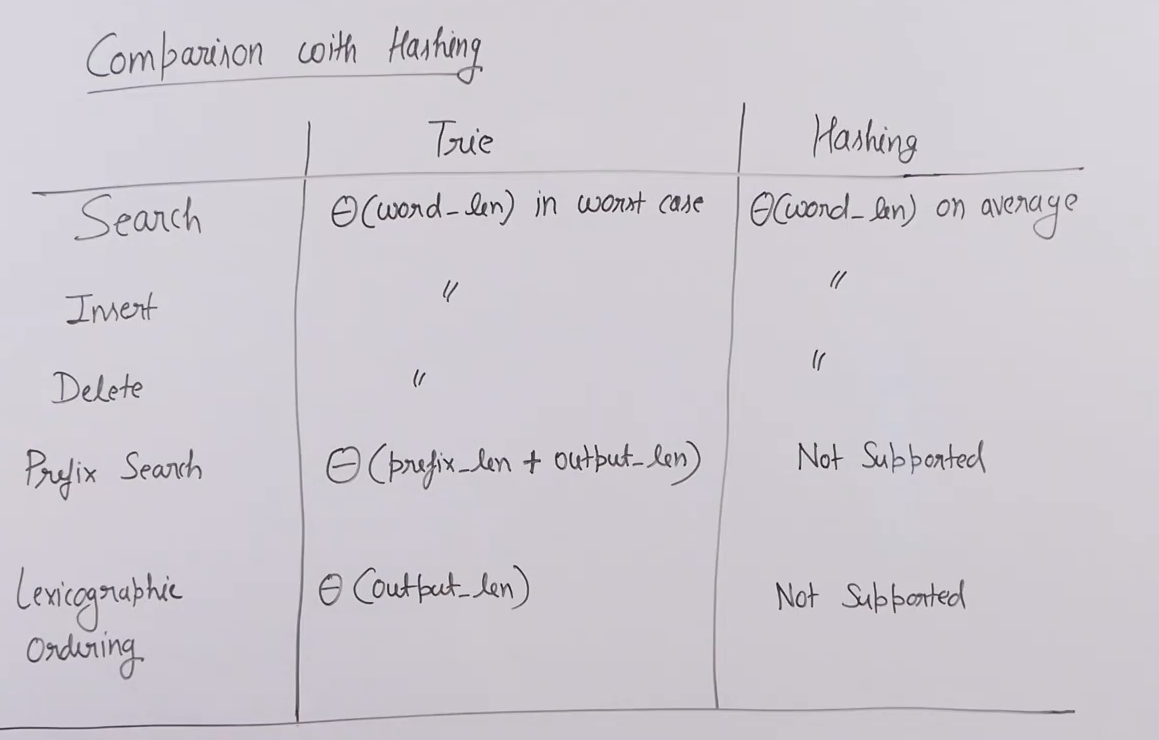 Comparison with Hashing
Trie Hashing
Search Θ(word_len) in worst case Θ(word_len) on average
Insert " "
Delete " "
Prefix Search Θ(prefix_len + output_len) Not Supported
Lexicographic Θ(output_len) Not Supported
Ordering